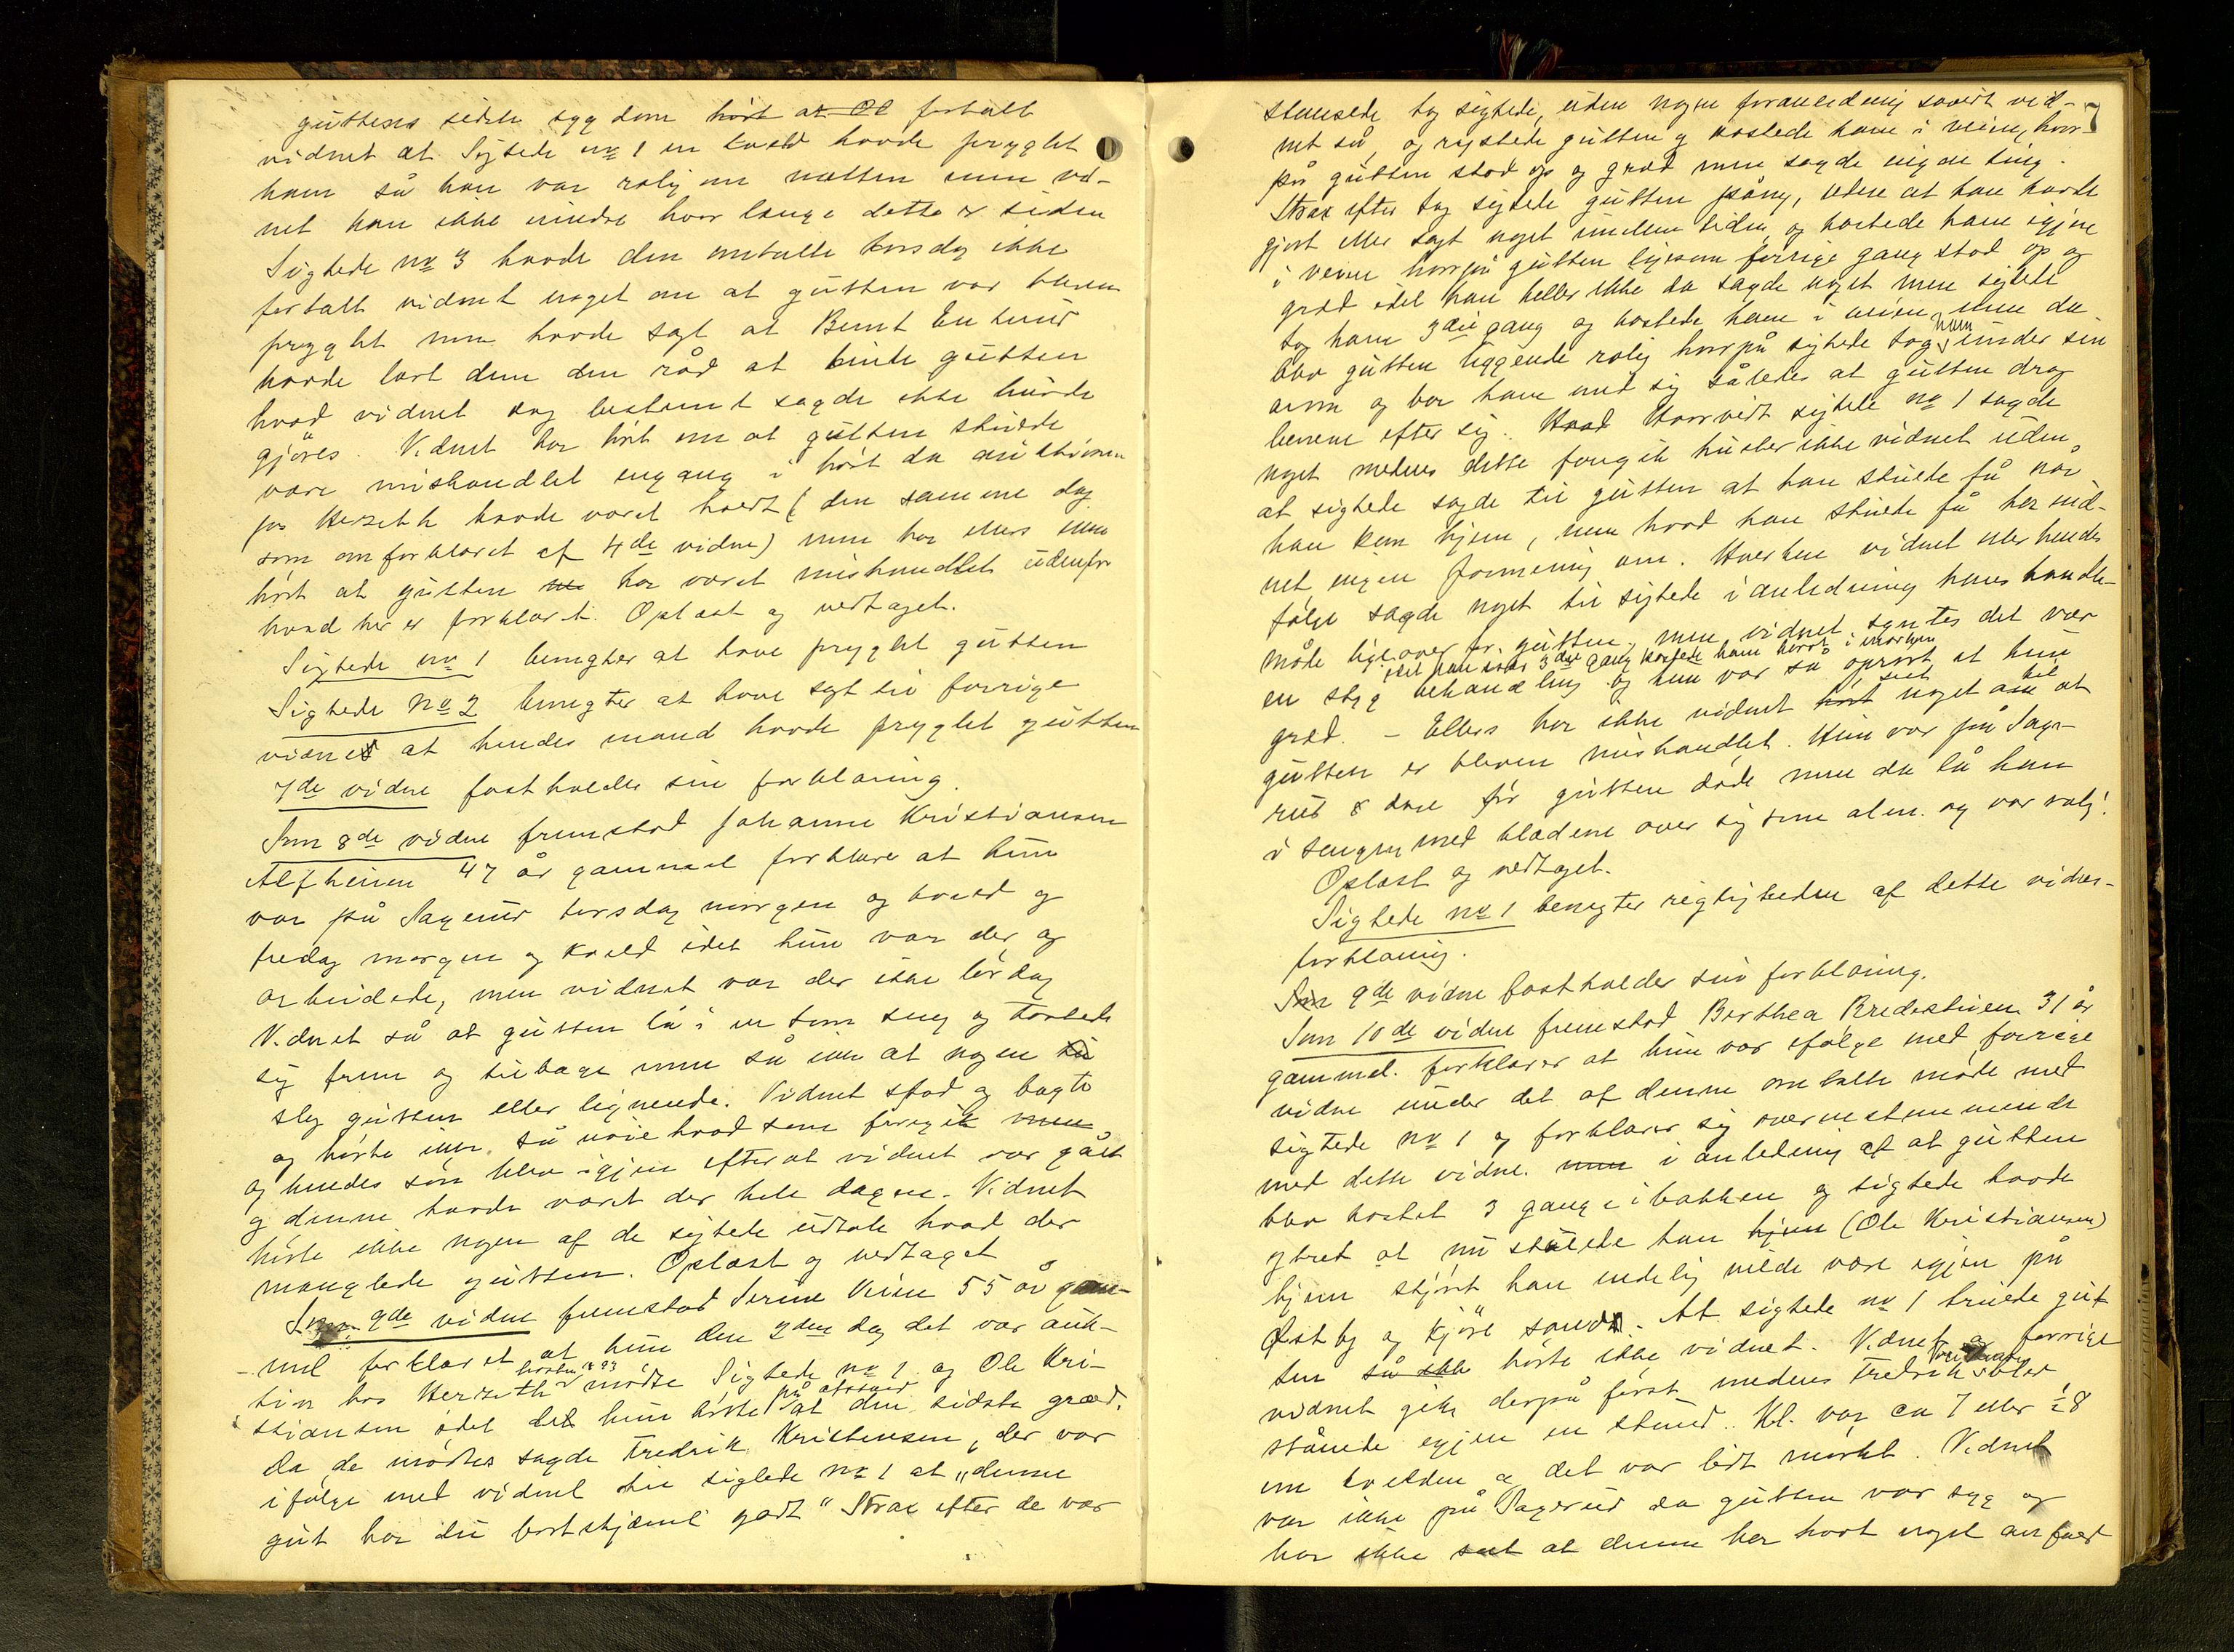 guttens sidste sygdom hört at Ol fortalt
vidnet at Sigtede no 1 en kveld havde pryglet
ham så han var rolig om natten men vid-
net kan ikke erindre hvor længe dette er siden
Sigtede no 3 havde den omtalte torsdag ikke
fortalt vidnet noget om at gutten var bleven
pryglet men havde sagt at Bernt Enerud
havde lært dem den råd at binde gutten
hvad vidnet dog bestemt sagde ikke burde
gjöres. Vidnet har hört om at gutten skulde
være mishandlet engang i höst da auktionen
på Herseth havde været holdt (den samme dag
som omforklaret af 4de vidne) men har ellers ikke
hört at gutten har været mishandlet udenfor
hvad her er forklaret. Oplæst og vedtaget.
Sigtede no 1 benegter at have pryglet gutten
Sigtede No 2 benegter at have sagt til forrige
vidnet at hendes mand havde pryglet gutten
7de vidne fastholder sin forklaring.
Som 8de vidne fremstod Johanne Kristiansen
Alfheimen 47 år gammel forklarer at hun
var på Sagerud torsdag morgen og kveld og
fredag morgen og kveld idet hun var der og
arbeidede, men vidnet var der ikke lördag
Vidnet så at gutten lå i en tom seng og kastede
sig frem og tilbage men så ikke at nogen
slog gutten eller lignende. Vidnet stod og bagte
og hörte ikke så nöie hvad som foregik men
og hendes sön blev igjen efterat vidnet var gået
og denne havde været der hele dagen. Vidnet
hörte ikke nogen af de sigtede udtale hvad der
manglede gutten. Oplæst og vedtaget
Som 9de vidne fremstod Serine Veien 55 år gam-
mel forklaret at hun den 2den dag det var auk-
tion hos Herseth hösten 1893 mödte Sigtede no 1 og Ole Kri-
stiansen idet det hun hörte på afstand at den sidste græd.
Da de mödtes sagde Fredrik Kristensen, der var
ifölge med vidnet til sigtede no 1 at "denne
gut har du bortskjæmt godt" Strax efter de var
stansede tog sigtede, uden nogen foranledning såvidt vid-
net så, og rystede gutten og kastede ham i veien, hvor-
på gutten stod op og græd men sagde ingen ting.
Strax efter tog sigtede gutten påny, uden at han havde
gjort eller sagt noget imellem tiden, og kastede ham igjen
i veien hvorpå gutten ligesom forrige gang stod op og
græd idet han heller ikke da sagde noget men sigtede
tog ham 3die gang og kastede ham i veien, men da
blev gutten liggende rolig hvorpå sigtede tog ham under sin
arm og bar ham med sig således at gutten drog
benene efter sig. Hvad Hvorvidt sigtede no 1 sagde
noget medens dette foregik husker ikke vidnet uden
at sigtede sagde til gutten at han skulde få når
han kom hjem, men hvad han skulde få har vid-
net ingen formening om. Hverken vidnet eller hendes
fölge sagde noget til sigtede i anledning hans handle-
måde ligeoverfor gutten, men vidnet syntes det var
en styg behandling idet han sidst 3die gang kastede ham hårdt i marken og hun var så oprört at hun
græd. - Ellers har ikke vidnet hört seet noget om til at
gutten er bleven mishandlet. Hun var på Sage-
rud 8 dage för gutten döde men da lå han
i sengen med klædene over sig som alm. og var rolig.
Oplæst og vedtaget.
Sigtede no 1 benegter rigtigheden af dette vidnes-
forklaring.
9de vidne fastholder sin forklaring.
Som 10de vidne fremstod Berthea Bredestuen 31 år
gammel. forklarer at hun var ifölge med forrige
vidne under det af denne omtalte möde med
sigtede no 1 og forklarer sig overenstemmende
med dette vidne. men i anledning af at gutten
blev kastet 3 gange i bakken og sigtede havde
ytret at nu skulde han hjem (Ole Kristiansen)
hjem skjönt han endelig vilde være igjen på
Østby og kjöre sand. At sigtede no 1 truede gut-
ten så ikke hörte ikke vidnet. Vidnet og forrige
vidnet gik derpå först medens Fredrik
stånede igjen en stund. Kl. var ca 7 eller 1/2 8
om kvelden og det var lidt mörkt. Vidnet
var ikke på Sagerud da gutten var syg og
har ikke seet at denne har havt noget anfald